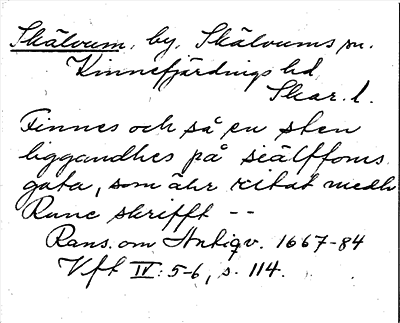 Skälvum, by, Skälvums sn.
Kinnefjärdings hd
Skar. l.
Finnes och så en sten
liggandhes på siälffoms
gata, som ähr ritat medh
Rune skrifft --
Rans. om Antiqv. 1667-84
Vft IV: 5-6, s. 114.